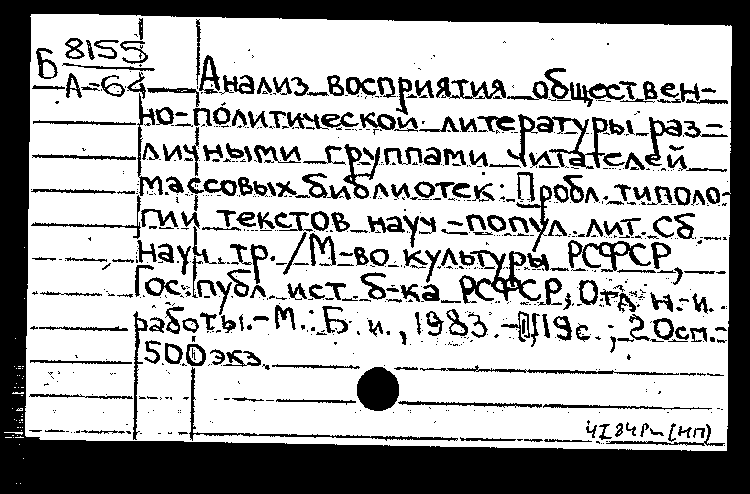 Б 8155
А-64
Анализ восприятия обществен-
но-политической литературы раз-
личными группами читателей
массовых библиотек: Пробл. типоло-
гии текстов науч.-попул. лит. Сб.
науч. тр. / М-во культуры РСФСР,
Гос. публ. ист. б-ка РСФСР, Отд. н.-и.
работы.-М.: Б. и., 1983.- 119с.; 20см.-
500экз.